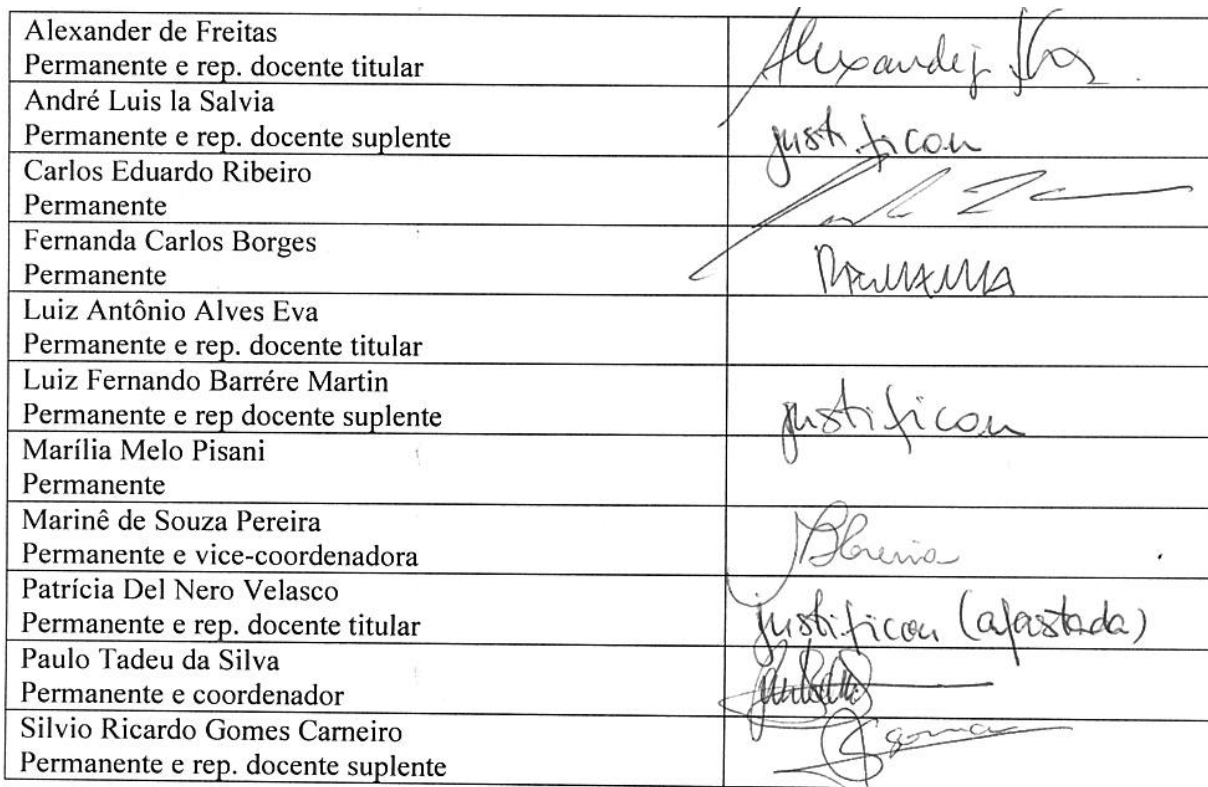 Alexander de Freitas
Permanente e rep. docente titular
André Luis la Salvia
Permanente e rep. docente suplente
justificou
Carlos Eduardo Ribeiro
Permanente
Fernanda Carlos Borges
Permanente
Luiz Antônio Alves Eva
Permanente e rep. docente titular
Luiz Fernando Barrére Martin
Permanente e rep docente suplente
justificou
Marília Melo Pisani
Permanente
Marinê de Souza Pereira
Permanente e vice-coordenadora
Patrícia Del Nero Velasco
Permanente e rep. docente titular
justificou (afastada)
Paulo Tadeu da Silva
Permanente e coordenador
Silvio Ricardo Gomes Carneiro
Permanente e rep. docente suplente